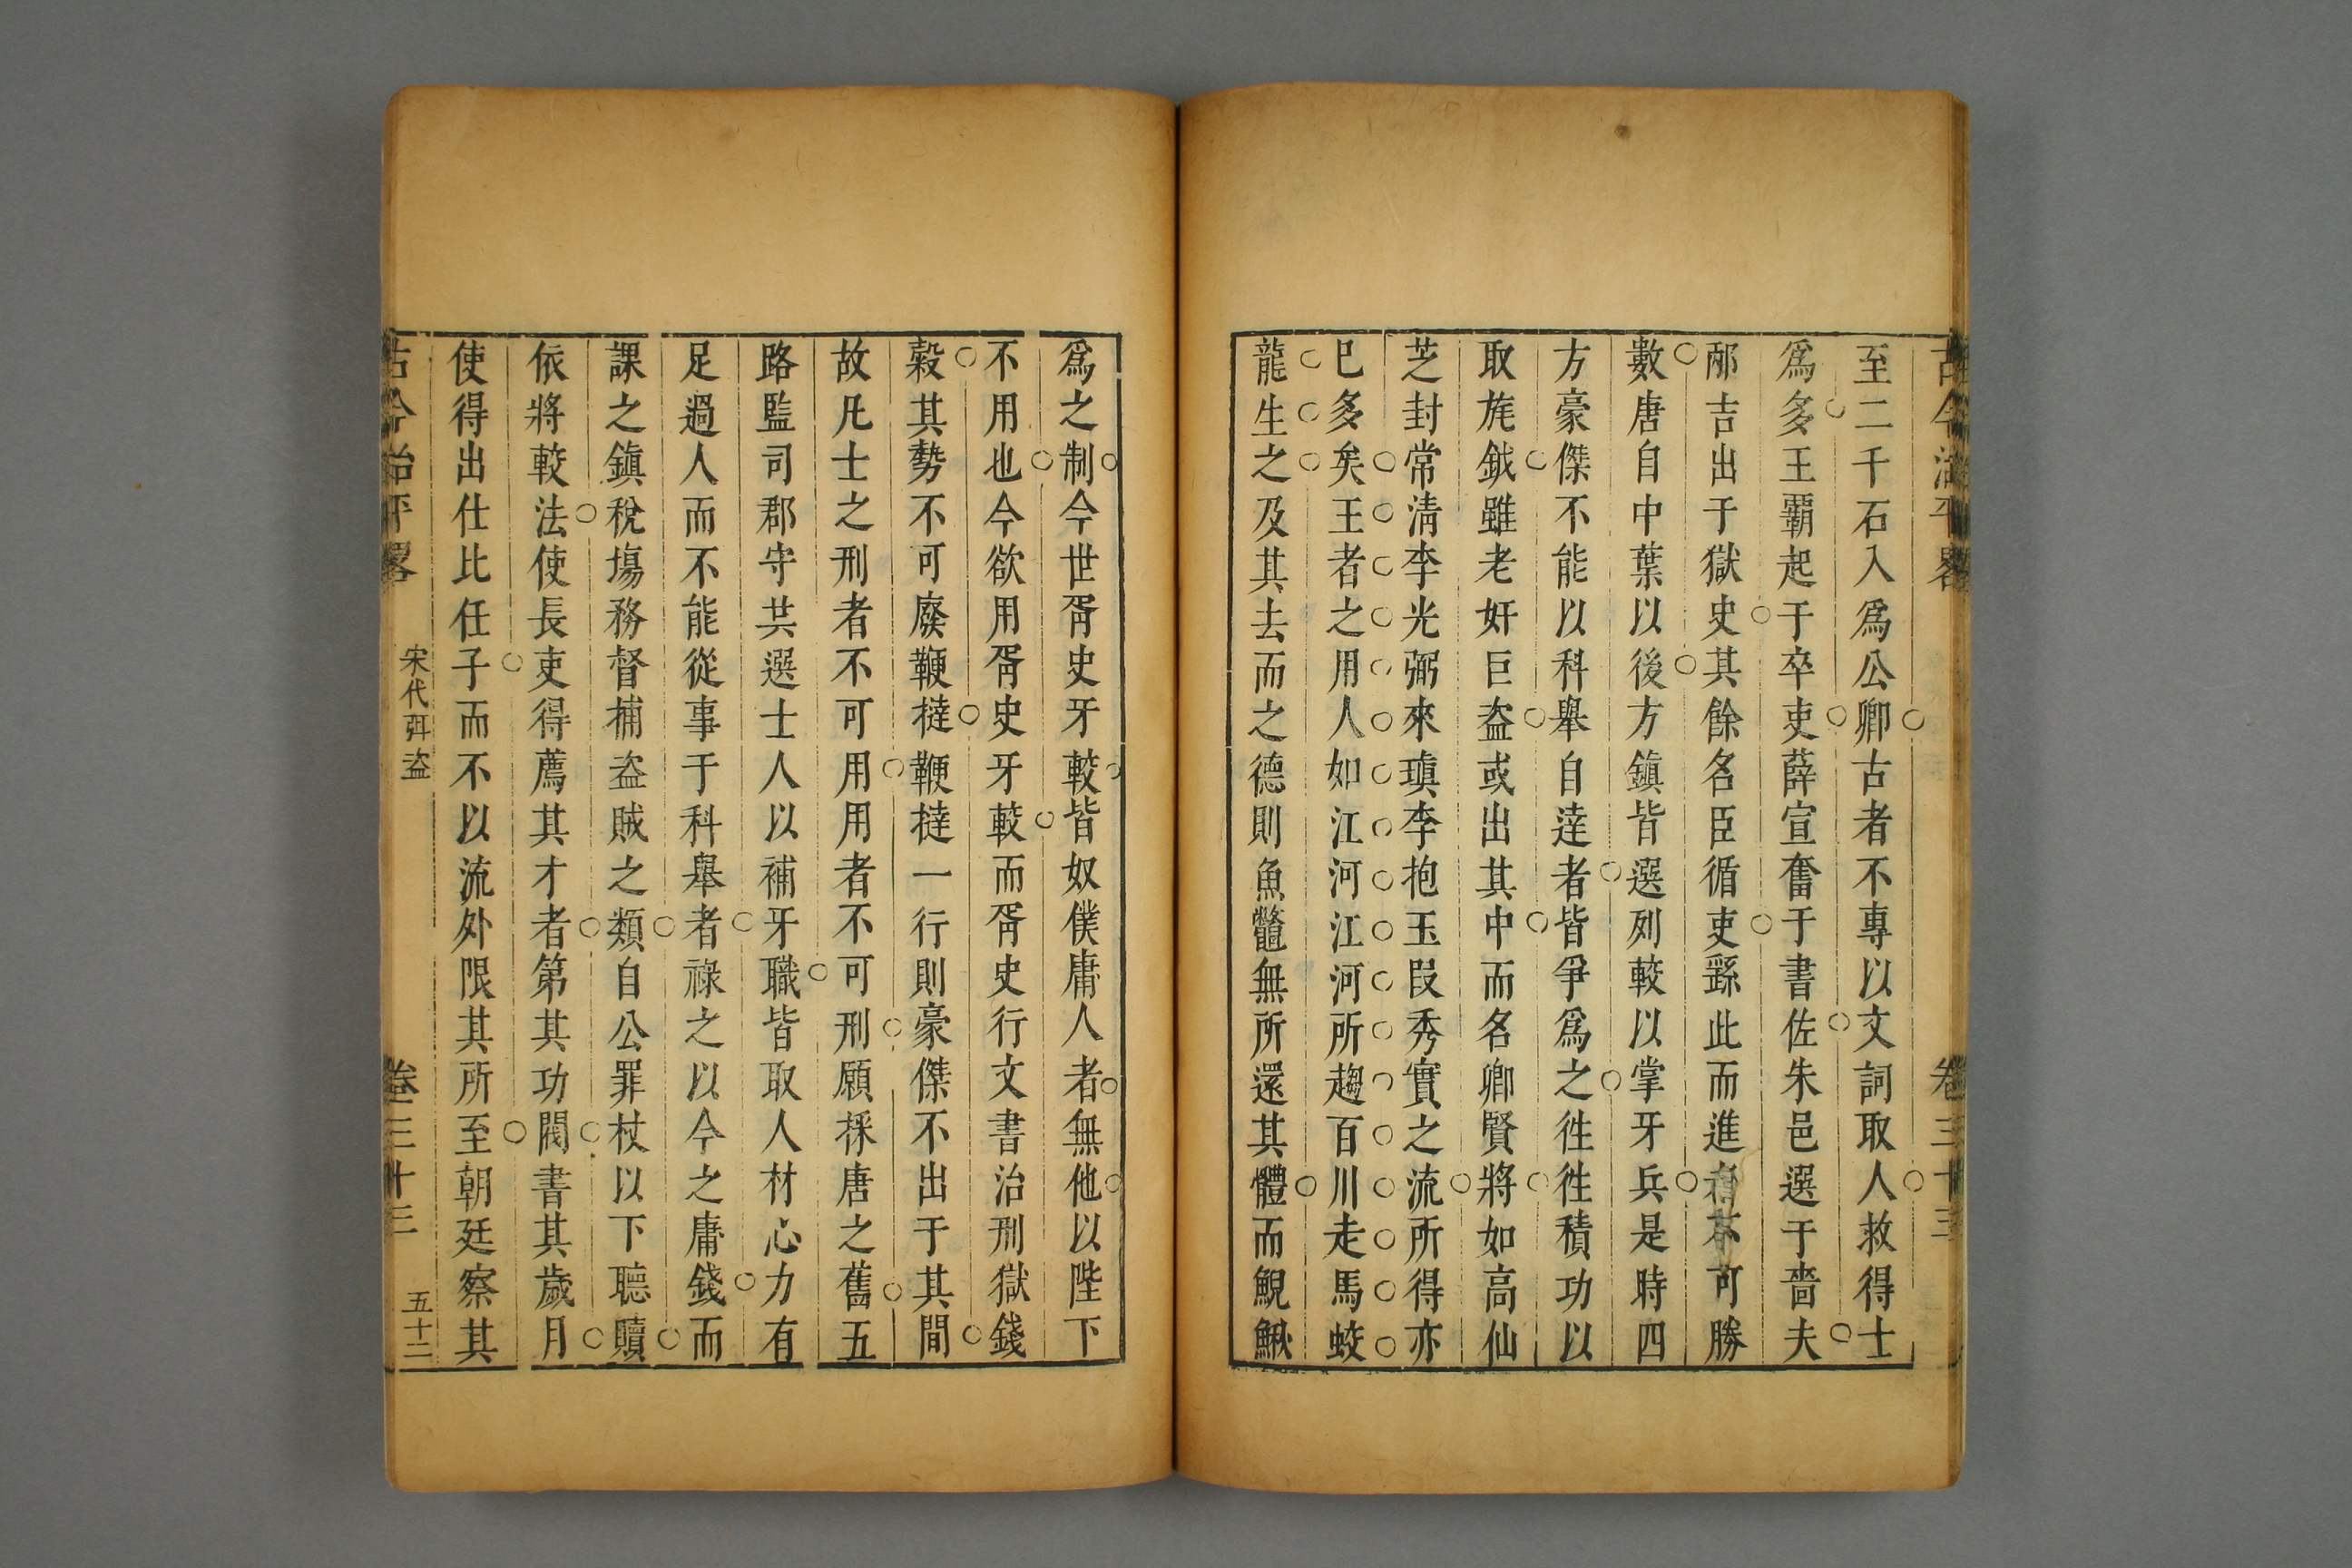 古今治平畧 卷三十三
至二千石入爲公卿古者不專以文詞取人救得士
爲多王覇起于卒吏薛宣奮于書佐朱邑選于嗇夫
邴吉出于獄史其餘名臣循吏繇此而進者不可勝
數唐自中葉以後方鎭皆選列較以掌牙兵是時四
方豪傑不能以科舉自達者皆爭爲之徃徃積功以
取旄鉞雖老奸巨盗或出其中而名卿賢將如高仙
芝封常淸李光弼來瑱李抱玉叚秀實之流所得亦
已多矣王者之用人如江河江河所趨百川走馬蛟
龍生之及其去而之德則魚鼈無所還其體而鯢鰍
爲之制今世胥史牙較皆奴僕庸人者無他以陛下
不用也今欲用胥史牙較而胥史行文書治刑獄錢
榖其勢不可廢鞭撻鞭撻一行則豪傑不出于其間
故凡士之刑者不可用用者不可刑願採唐之舊五
路監司郡守共選士人以補牙職皆取人材心力有
足過人而不能從事于科舉者祿之以今之庸錢而
課之鎭稅塲務督捕盗賊之類自公罪杖以下聽贖
依將較法使長吏得薦其才者第其功閥書其歲月
使得出仕比任子而不以流外限其所至朝廷察其
古今治平畧 宋代弭盗 卷三十三 五十二